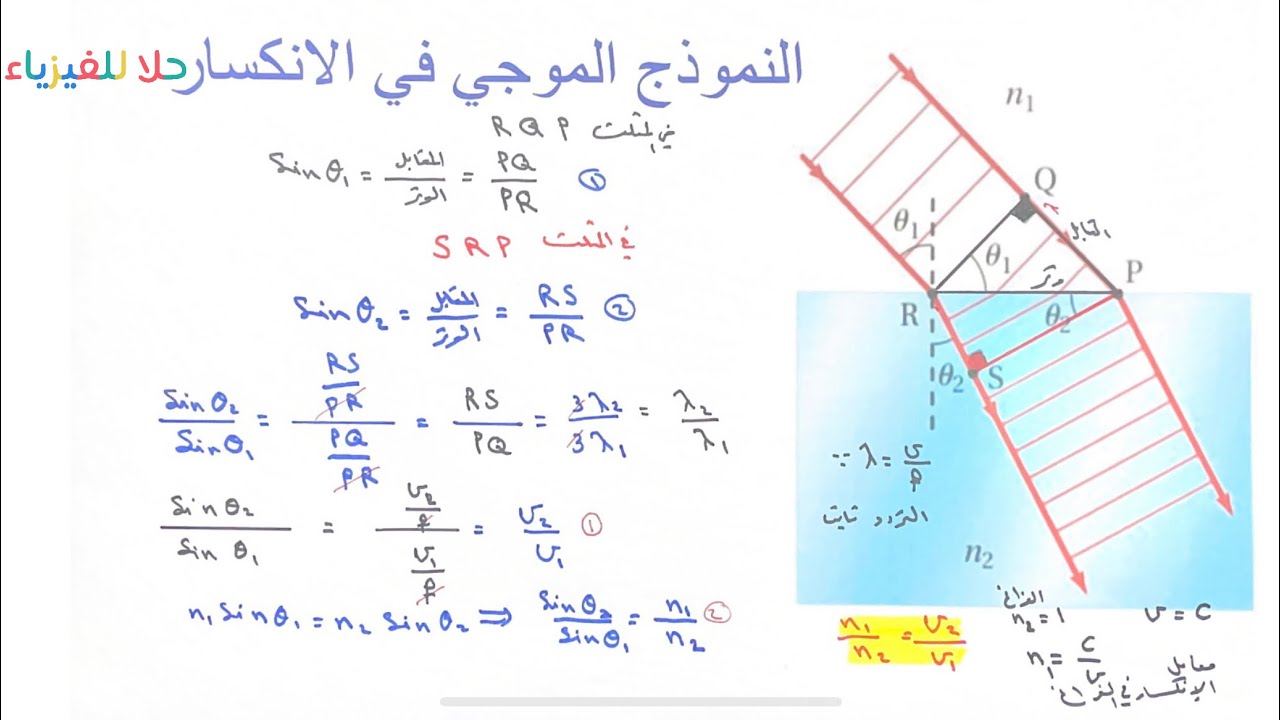 حلا للفيزياء
النموذج الموجي في الانكسار
في المثلث RQP
Sinθ₁ = المقابل/الوتر = PQ/PR ①
في المثلث SRP
Sinθ₂ = المقابل/الوتر = RS/PR ②
Sinθ₂/Sinθ₁ = (RS/PR)/(PQ/PR) = RS/PQ = 3λ₂/3λ₁ = λ₂/λ₁
Sinθ₂/Sinθ₁ = (v₂/f)/(v₁/f) = v₂/v₁ ①
n₁Sinθ₁ = n₂Sinθ₂ ⇒ Sinθ₂/Sinθ₁ = n₁/n₂ ②
n₁
Q
λ
المقابل
θ₁
θ₁
وتر
P
R
θ₂
θ₂
S
∵ λ = v/f
التردد ثابت
n₂
n₁/n₂ = v₂/v₁
الفراغ
n₂ = 1
v = c
n₁ = c/v
معامل
الانكسار في الفراغ